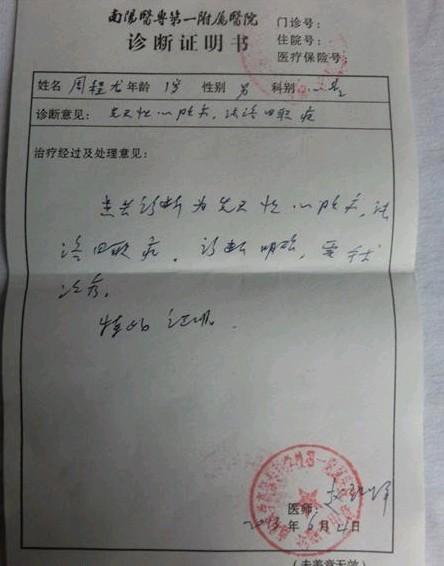 南陽醫專第一附属醫院
门诊号：
诊断证明书
住院号：
医疗保险号：
姓名 周程龙 年龄 1岁 性别 男 科别
诊断意见： 先天性心脏病，法洛四联症
治疗经过及处理意见：
患者诊断为先天性心脏病，法
洛四联症。诊断明确，需手术
治疗。
特此证明。
医师：
2013年6月4日
（未盖章无效）